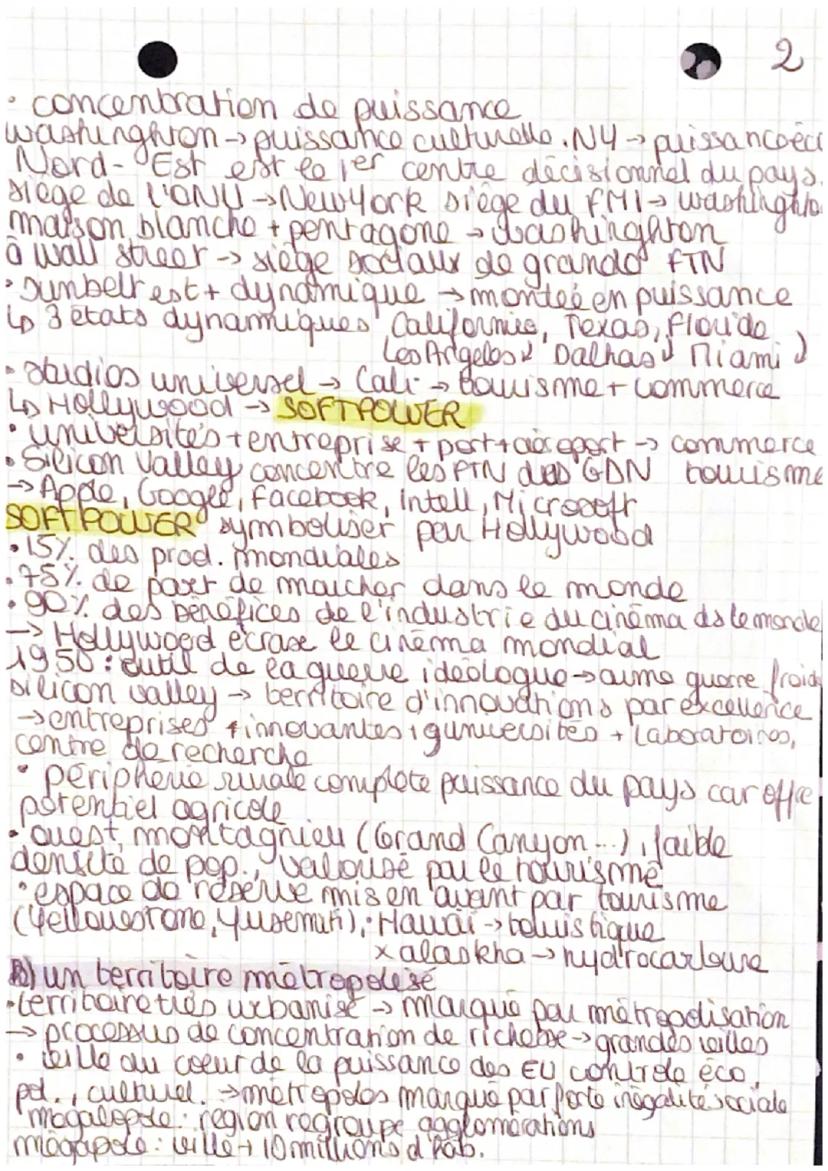 2
• concentration de puissance
washinghton → puissance culturelle. NY → puissance éco
Nord-Est est le 1er centre décisionnel du pays.
siège de l'ONU → New York siège du FMI → washinghto
maison blanche + pentagone → washinghton
à wall street → siège sociaux de grands FTN
• sunbelt est + dynamique → montée en puissance
↳ 3 états dynamiques Californie, Texas, Floride
Los Angeles Dalhas Miami
• studios universel → Cali → tourisme + commerce
↳ Hollywood → SOFTPOWER
• universités + entreprise + port + aéroport → commerce
• Silicon Valley concentre les FTN des GDN tourisme
→ Apple, Google, Facebook, Intell, Microsoft
SOFTPOWER symboliser par Hollywood
• 15% des prod. mondiales
• 75% de part de marcher dans le monde
• 90% des bénéfices de l'industrie du cinéma ds le monde
→ Hollywood écrase le cinéma mondial
1950 : outil de la guerre idéologue → arme guerre froid
silicon valley → territoire d'innovations par excellence
→ entreprises + innovantes, universités + laboratoires,
centre de recherche
• périphérie rurale complète puissance du pays car offre
potentiel agricole
• ouest montagnieu (Grand Canyon...), faible
densité de pop., valorisé par le tourisme
• espace de réserve mis en avant par tourisme
(Yellowestone, Yusemiti), • Hawaï → touristique
x alaskha → hydrocarbure
B) un territoire métropolisé
• territoire très urbanisé → marqué par métropolisation
→ processus de concentration de richesse → grandes villes
• ville au coeur de la puissance des EU contrôle éco,
pol., culturel. → métropoles marqué par forte inégalité sociale
mégalopole : region regroupe agglomérations
mégapole : ville + 10 millions d'hab.